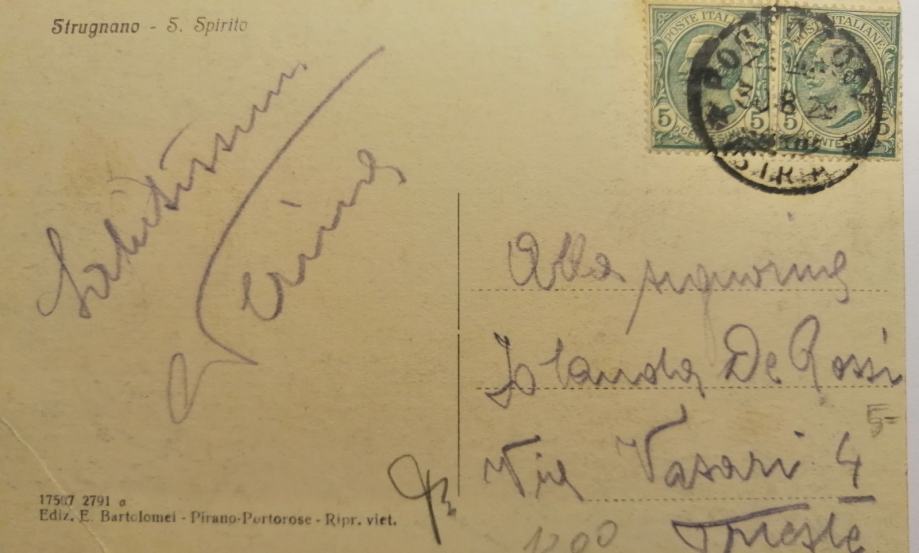 Strugnano - S. Spirito
POSTE ITALIANE
POSTE ITALIANE
5 5 5 5
CENTESIMI
Salutissimi
Alla signorina
Jolanda De Rossi
Via Vasari 4
Trieste
5-
1200
17507 2791 a
Ediz. E. Bartolomei - Pirano-Portorose - Ripr. viet.